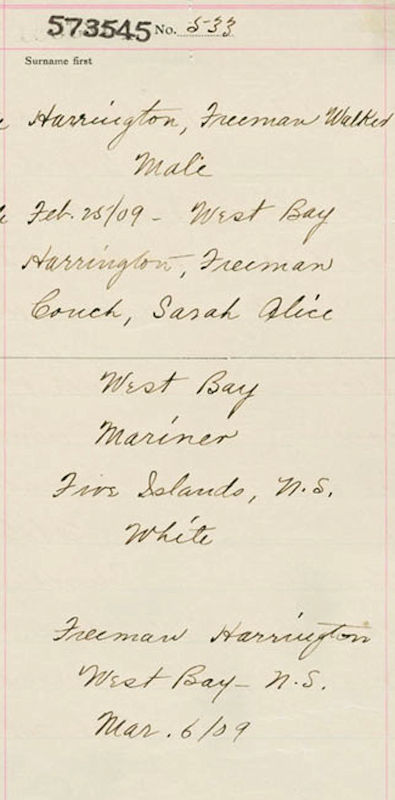 573545 No. 533
Surname first
Harrington, Freeman Walker
Male
Feb. 25/09 - West Bay
Harrington, Freeman
Couch, Sarah Alice
West Bay
Mariner
Five Islands, N.S.
White
Freeman Harrington
West Bay - N.S.
Mar. 6/09